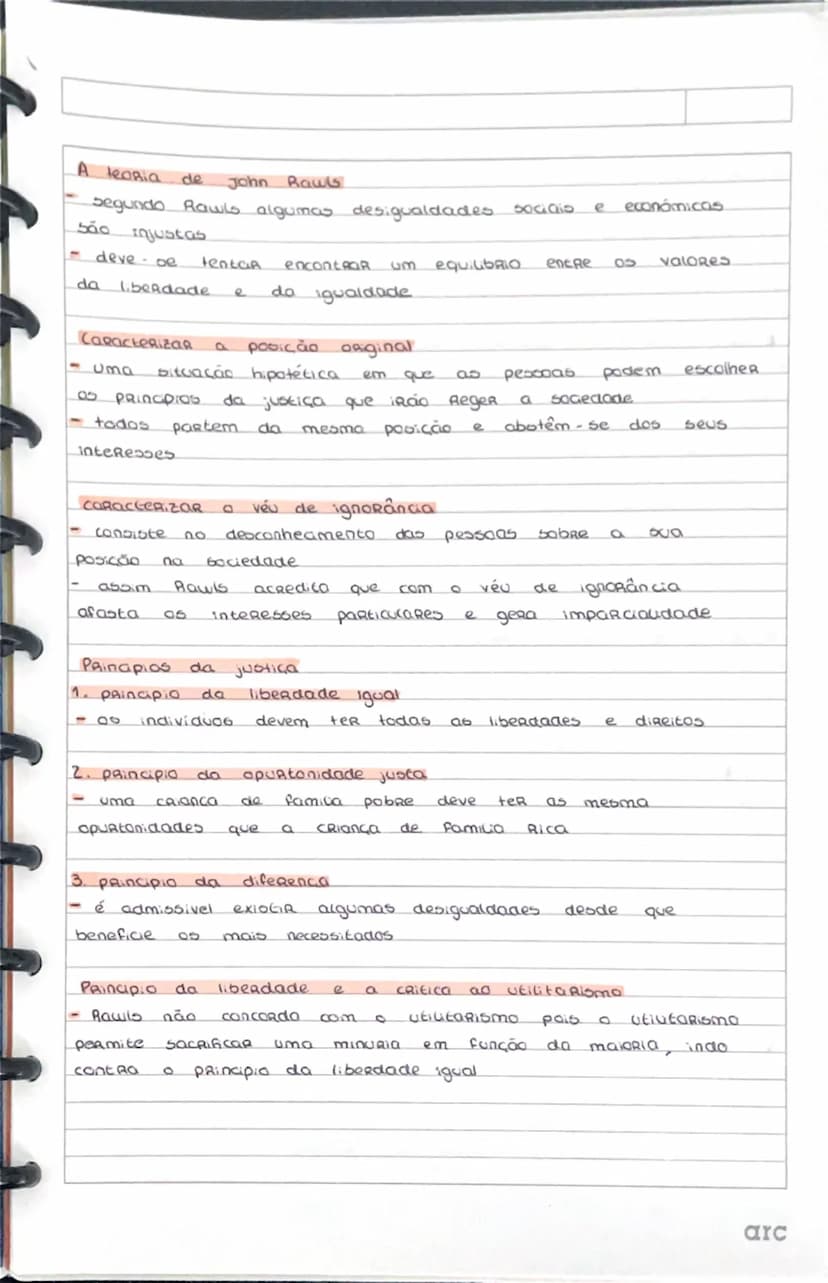 A teoria de John Rawls
- segundo Rawls algumas desigualdades sociais e económicas
são injustas
- deve-se tentar encontrar um equilíbrio entre os valores
da liberdade e da igualdade
Caracterizar a posição original
- uma situação hipotética em que as pessoas podem escolher
os princípios da justiça que irão reger a sociedade
- todos partem da mesma posição e abstêm-se dos seus
interesses
caracterizar o véu de ignorância
- consiste no desconhecimento das pessoas sobre a sua
posição na sociedade
- assim Rawls acredita que com o véu de ignorância
afasta os interesses particulares e gera imparcialidade
Princípios da justiça
1. princípio da liberdade igual
- os indivíduos devem ter todas as liberdades e direitos
2. princípio da opurtonidade justa
- uma criança de família pobre deve ter as mesma
opurtonidades que a criança de família rica
3. princípio da diferença
- é admissível existir algumas desigualdades desde que
beneficie os mais necessitados
Princípio da liberdade e a crítica ao utilitarismo
- Rawls não concorda com o utilitarismo pois o utilitarismo
permite sacrificar uma minuria em função da maioria, indo
contra o princípio da liberdade igual
arc